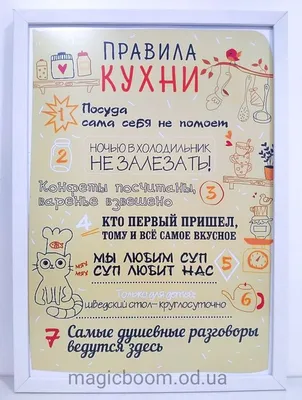 ПРАВИЛА
КУХНИ
1 Посуда
сама себя не помоет
2 НОЧЬЮ В ХОЛОДИЛЬНИК
НЕ ЗАЛЕЗАТЬ!
Конфеты посчитаны,
варенье взвешено 3
4 КТО ПЕРВЫЙ ПРИШЕЛ,
ТОМУ И ВСЁ САМОЕ ВКУСНОЕ
МЫ ЛЮБИМ СУП
СУП ЛЮБИТ НАС 5
Только для детей:
шведский стол- круглосуточно 6
7 Самые душевные разговоры
ведутся здесь
magicboom.od.ua